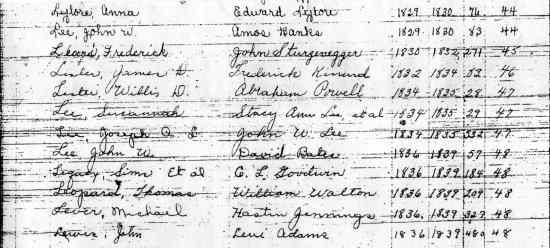 Lytove, Anna Edward Lytove 1829 1830 76 44
Lee, John W. Amos Banks 1829 1830 83 44
Frederick John Sturzenegger 1830 1832 271 45
Lester, James D. Frederick 1832 1834 52 46
Lester Willis D. Abraham Powell 1834 1835 28 47
Lee, Susannah Stacy Ann Lee, et al 1834 1835 29 47
Lee, Joseph John W. Lee 1834 1835 332 47
Lee John W. David Bates 1836 1839 57 48
Legacy Sims Et al C. L. Goodwin 1836 1839 184 48
Leopard, Thomas William Walton 1836 1839 209 48
Lever, Michael Hastin Jennings 1836 1839 327 48
Lewis, John Levi Adams 1836 1839 480 48